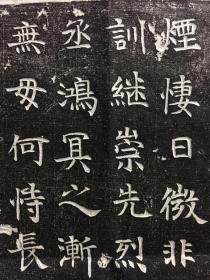 煙悽日微非
訓継崇先烈
丞鴻冥之漸
無毋何恃長